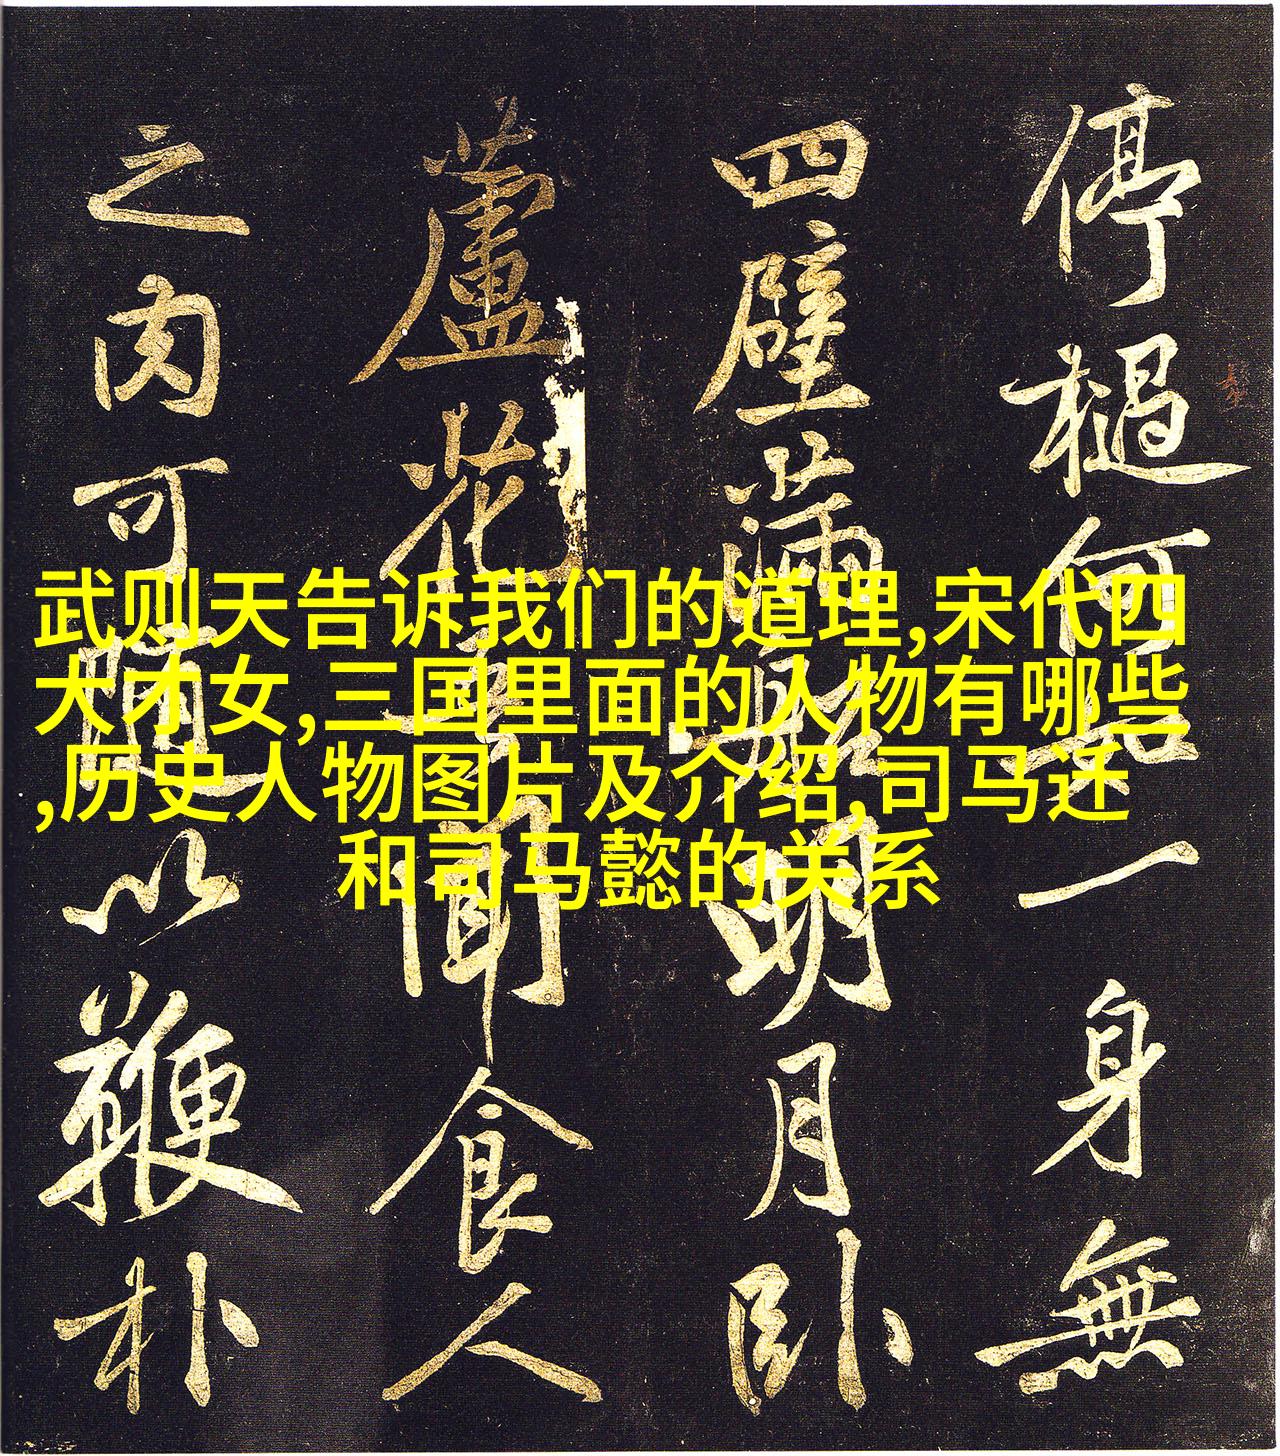 武则天告诉我们的道理,宋代四
大才女,三国里面的人物有哪些
,历史人物图片及介绍,司马迁
和司马懿的关系
停檛何無一身無
四壁滿明月卧
蘆花聞食人
之肉可隨以鞭朴